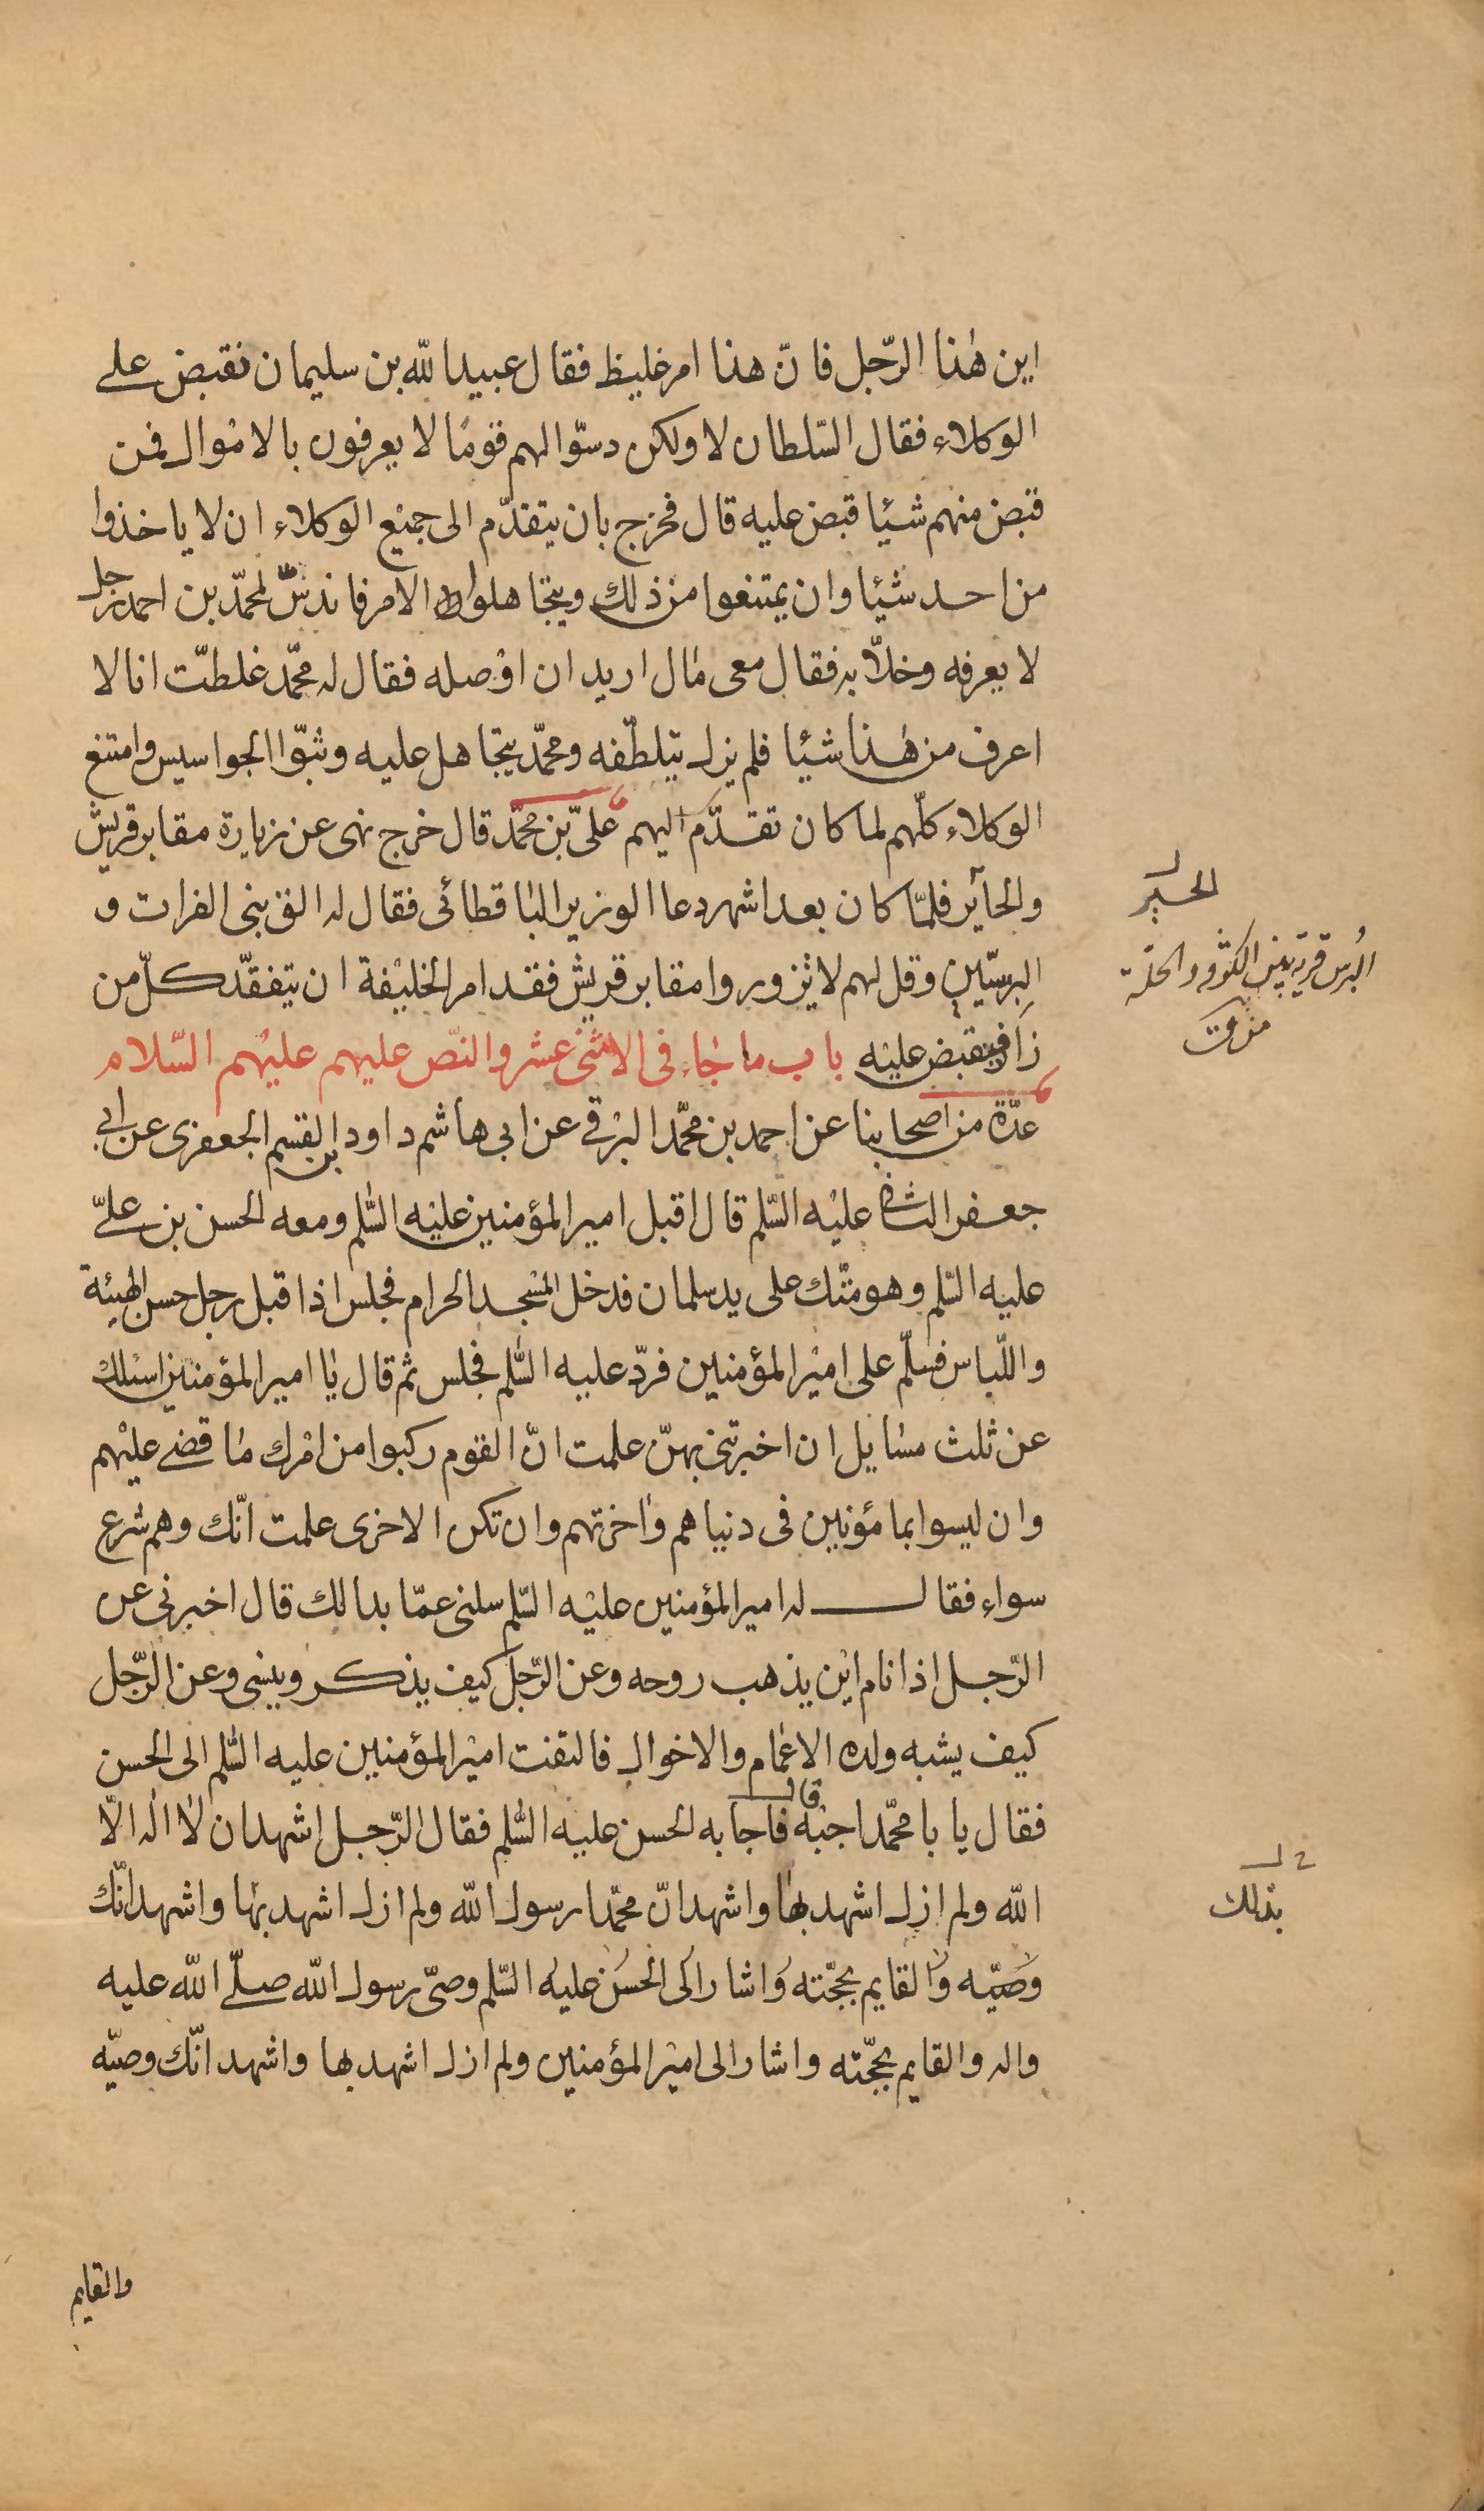 اين هٰذا الرّجل فانّ هذا امر غليظ فقال عبيد الله بن سليمان نقبض على
الوكلاء فقال السّلطان لا ولكن دسّوا لهم قومًا لا يعرفون بالاموال فمن
قبض منهم شيئا قبض عليه قال فخرج بان يتقدّم الى جميع الوكلاء ان لا ياخذوا
من احد شيئا وان يمتنعوا من ذلك ويتجاهلوا الامر فاندسّ لمحمّد بن احمد رجل
لا يعرفه وخلا به فقال معى مال اريد ان اوصله فقال له محمّد غلطت انا لا
اعرف من هٰذا شيئا فلم يزل يتلطّفه ومحمّد يتجاهل عليه وبثّوا الجواسيس وامتنع
الوكلاء كلّهم لما كان تقدّم اليهم علىّ بن محمّد قال خرج نهى عن زيارة مقابر قريش
والحآير فلمّا كان بعد اشهر دعا الوزير الباقطائى فقال له الق بنى الفرات و
البرسيّين وقل لهم لا يزوروا مقابر قريش فقد امر الخليفة ان يتفقّد كلّ من
زار فيقبض عليه باب ما جاء فى الاثنى عشر والنّص عليهم عليهم السّلام
عدّة من اصحابنا عن احمد بن محمّد البرقى عن ابى هاشم داود بن القسم الجعفرى عن ابى
جعفر الثانى عليه السّلم قال اقبل امير المؤمنين عليه السّلم ومعه الحسن بن علىّ
عليه السّلم وهو متّك على يد سلمان فدخل المسجد الحرام فجلس اذا قبل رجل حسن الهيئة
واللّباس فسلّم على امير المؤمنين فردّ عليه السّلم فجلس ثم قال يا امير المؤمنين اسئلك
عن ثلث مسايل ان اخبرتنى بهنّ علمت انّ القوم ركبوا من امرك ما قضى عليهم
وان ليسوا بمامؤنين فى دنياهم واخرتهم وان تكن الاخرى علمت انّك وهم شرع
سواء فقال له امير المؤمنين عليه السّلم سلنى عمّا بدا لك قال اخبرنى عن
الرّجل اذا نام اين يذهب روحه وعن الرّجل كيف يذكر وينسى وعن الرّجل
كيف يشبه ولده الاعمام والاخوال فالتفت امير المؤمنين عليه السّلم الى الحسن
فقال يا با محمّد اجبه قال فاجابه الحسن عليه السّلم فقال الرّجل اشهد ان لا اله الّا
الله ولم ازل اشهد بها واشهد انّ محمّدا رسول الله ولم ازل اشهد بها واشهد انّك
وصيّه والقايم بحجّته واشار الى الحسن عليه السّلم وصىّ رسول الله صلّى الله عليه
واله والقايم بحجّته واشار الى امير المؤمنين ولم ازل اشهد بها واشهد انّك وصيّه
والقايم
الحير
البُرس قرية بين الكوفه والحلة
خ ل
بذلك